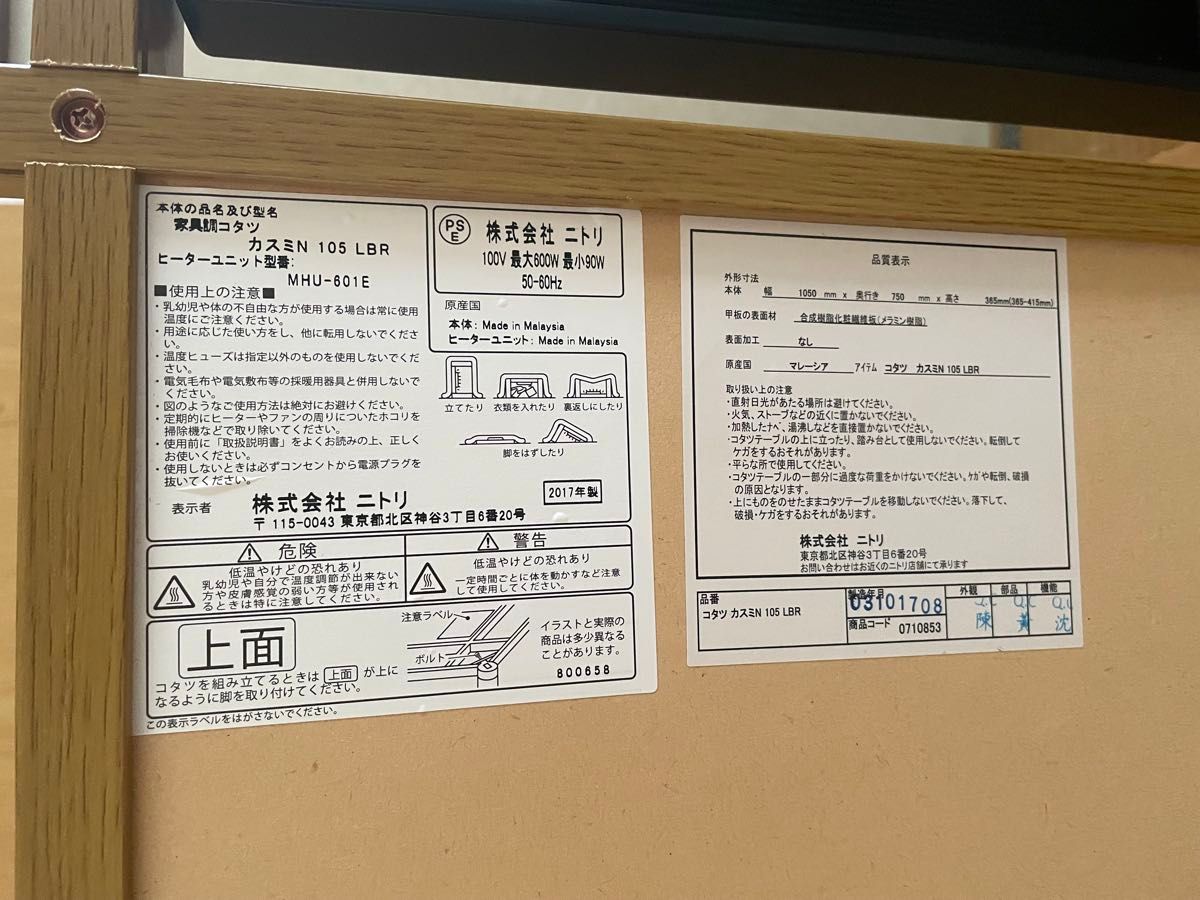 本体の品名及び型名
家具調コタツ
カスミN 105 LBR
ヒーターユニット型番:
MHU-601E
■使用上の注意■
・乳幼児や体の不自由な方が使用する場合は常に使用
温度にご注意ください。
・用途に応じた使い方をし、他に転用しないでくださ
い。
・温度ヒューズは指定以外のものを使用しないでくだ
さい。
・電気毛布や電気敷布等の採暖用器具と併用しないで
ください。
・図のようなご使用方法は絶対にお避けください。
・定期的にヒーターやファンの周りについたホコリを
掃除機などで取り除いてください。
・使用前に「取扱説明書」をよくお読みの上、正しく
お使いください。
・使用しないときは必ずコンセントから電源プラグを
抜いてください。
PS
E
株式会社 ニトリ
100V 最大600W 最小90W
50-60Hz
原産国
本体: Made in Malaysia
ヒーターユニット: Made in Malaysia
立てたり 衣類を入れたり 裏返しにしたり
脚をはずしたり
2017年製
表示者 株式会社 ニトリ
〒 115-0043 東京都北区神谷3丁目6番20号
危険
低温やけどの恐れあり
乳幼児や自分で温度調節が出来ない
方や皮膚感覚の弱い方等が使用され
るときは特に注意してください。
警告
低温やけどの恐れあり
一定時間ごとに体を動かすなど注意
して使用してください。
上面
コタツを組み立てるときは 上面 が上に
なるように脚を取り付けてください。
注意ラベル
ボルト
イラストと実際の
商品は多少異なる
ことがあります。
800658
この表示ラベルをはがさないでください。
品質表示
外形寸法
本体 幅 1050 mm x 奥行き 750 mm x 高さ 365mm(365-415mm)
甲板の表面材 合成樹脂化粧繊維板(メラミン樹脂)
表面加工 なし
原産国 マレーシア アイテム コタツ カスミN 105 LBR
取り扱い上の注意
・直射日光があたる場所は避けてください。
・火気、ストーブなどの近くに置かないでください。
・加熱したナベ、湯沸しなどを直接置かないでください。
・コタツテーブルの上に立ったり、踏み台として使用しないでください。転倒して
ケガをするおそれがあります。
・平らな所で使用してください。
・コタツテーブルの一部分に過度な荷重をかけないでください。ケガや転倒、破損
の原因となります。
・上にものをのせたままコタツテーブルを移動しないでください。落下して、
破損・ケガをするおそれがあります。
株式会社 ニトリ
東京都北区神谷3丁目6番20号
お問い合わせはお近くのニトリ店舗にて承ります
品番
コタツ カスミN 105 LBR
製造年月
03101708
商品コード 0710853
外観 部品 機能
Q.C Q.C Q.C
陳 黄 沈